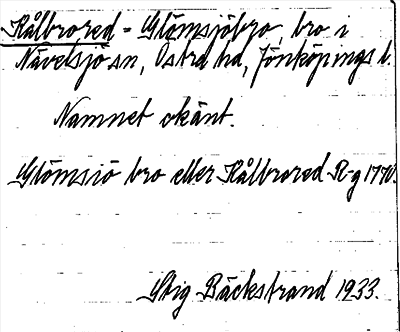 Kålbrored - Glömsjöbro, bro i
Nävelsjö sn, Östra hd, Jönköpings l.
Namnet okänt.
Glömsiö bro eller Kålbrored R-g 1770.
Stig Bäckstrand 1933.